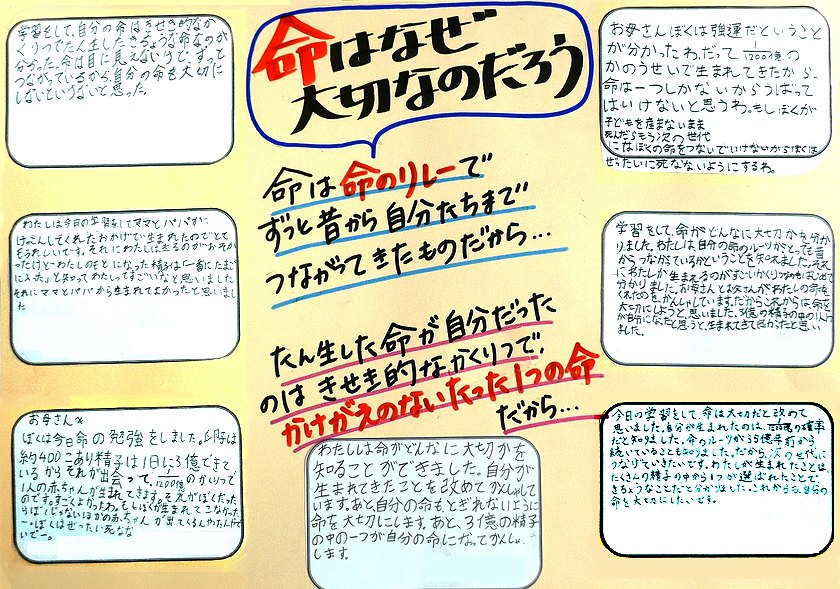 命はなぜ
大切なのだろう
命は命のリレーで
ずっと昔から自分たちまで
つながってきたものだから…
たん生した命が自分だった
のはきせき的なかくりつで、
かけがえのないたった1つの命
だから…
学習をして、自分の命はきせき的なか
くりつでたん生したきちょうな命なのが
分かった。命は目に見えないけど、ずっと
つながっているから、自分の命も大切に
しないといけないと思った。
わたしは今日の学習をしてママとパパが、
けっこんしてくれたおかげで生まれたのでとて
もうれしいです。それにわたしは生るのがおそか
ったけど
わたしのもとになった精子は「一番にたまご
に入った」と知ってわたしってすごいなと思いました
それにママとパパから生まれてよかったと思いまし
た
お母さんへ
ぼくは今日命の勉強をしました。卵子は
約400こあり精子は1日に3億できて
いるからそれが出会って、1/1200億のかくりつで
1人の赤ちゃんが生まれてきます。それがぼくだった
のです。すーごくよかったわ。もしぼくが生まれてこなかった
らぼくじゃないほかの赤ちゃんが出てくるんやもん
ぼくはぜったい死なな
いでー。
わたしは命がどんなに大切かを
知ることができました。自分が
生まれてきたことを改めてかんしゃして
います。あと、自分の命もとぎれないように
命を大切にします。あと、3億の精子
の中の一つが自分の命になってかんしゃ
します。
お母さんぼくは強運だということ
が分かったわ。だって1/1200億の
かのうせいで生まれてきたから。
命は一つしかないからうばって
はいけないと思うわ。もしぼくが
子どもを産まないまま
死んだらもう次の世代
にはぼくの命をつないでいけないからぼくは
ぜったいに死なないようにするわ。
学習をして、命がどんなに大切かを分か
りました。わたしは、自分の命のルーツがとっても昔
からつながっているということを知れました。それ
にわたしが生まえるのがすごいかくりつなのもはじめて
分かりました。お母さんとお父さんがわたしの命を
くれたのをかんしゃしています。だからこれからは、命を
大切にしようと、思いました。3億の精子の中の1人
が自分になったと思うと、生まれてきて良かったと思い
ました。
今日の学習をして、命は大切だと改めて
思いました。自分が生まれたのは、1/1200億の確率
だと知りました。命のルーツが35億年前から
続いていることも知りました。だから、次の世代に
つなげていきたいです。わたしが生まれたことは
たくさんの精子の中から1つが選ばれたことで、
きちょうなことだと分かりました。これからも自分の
命を大切にしたいです。